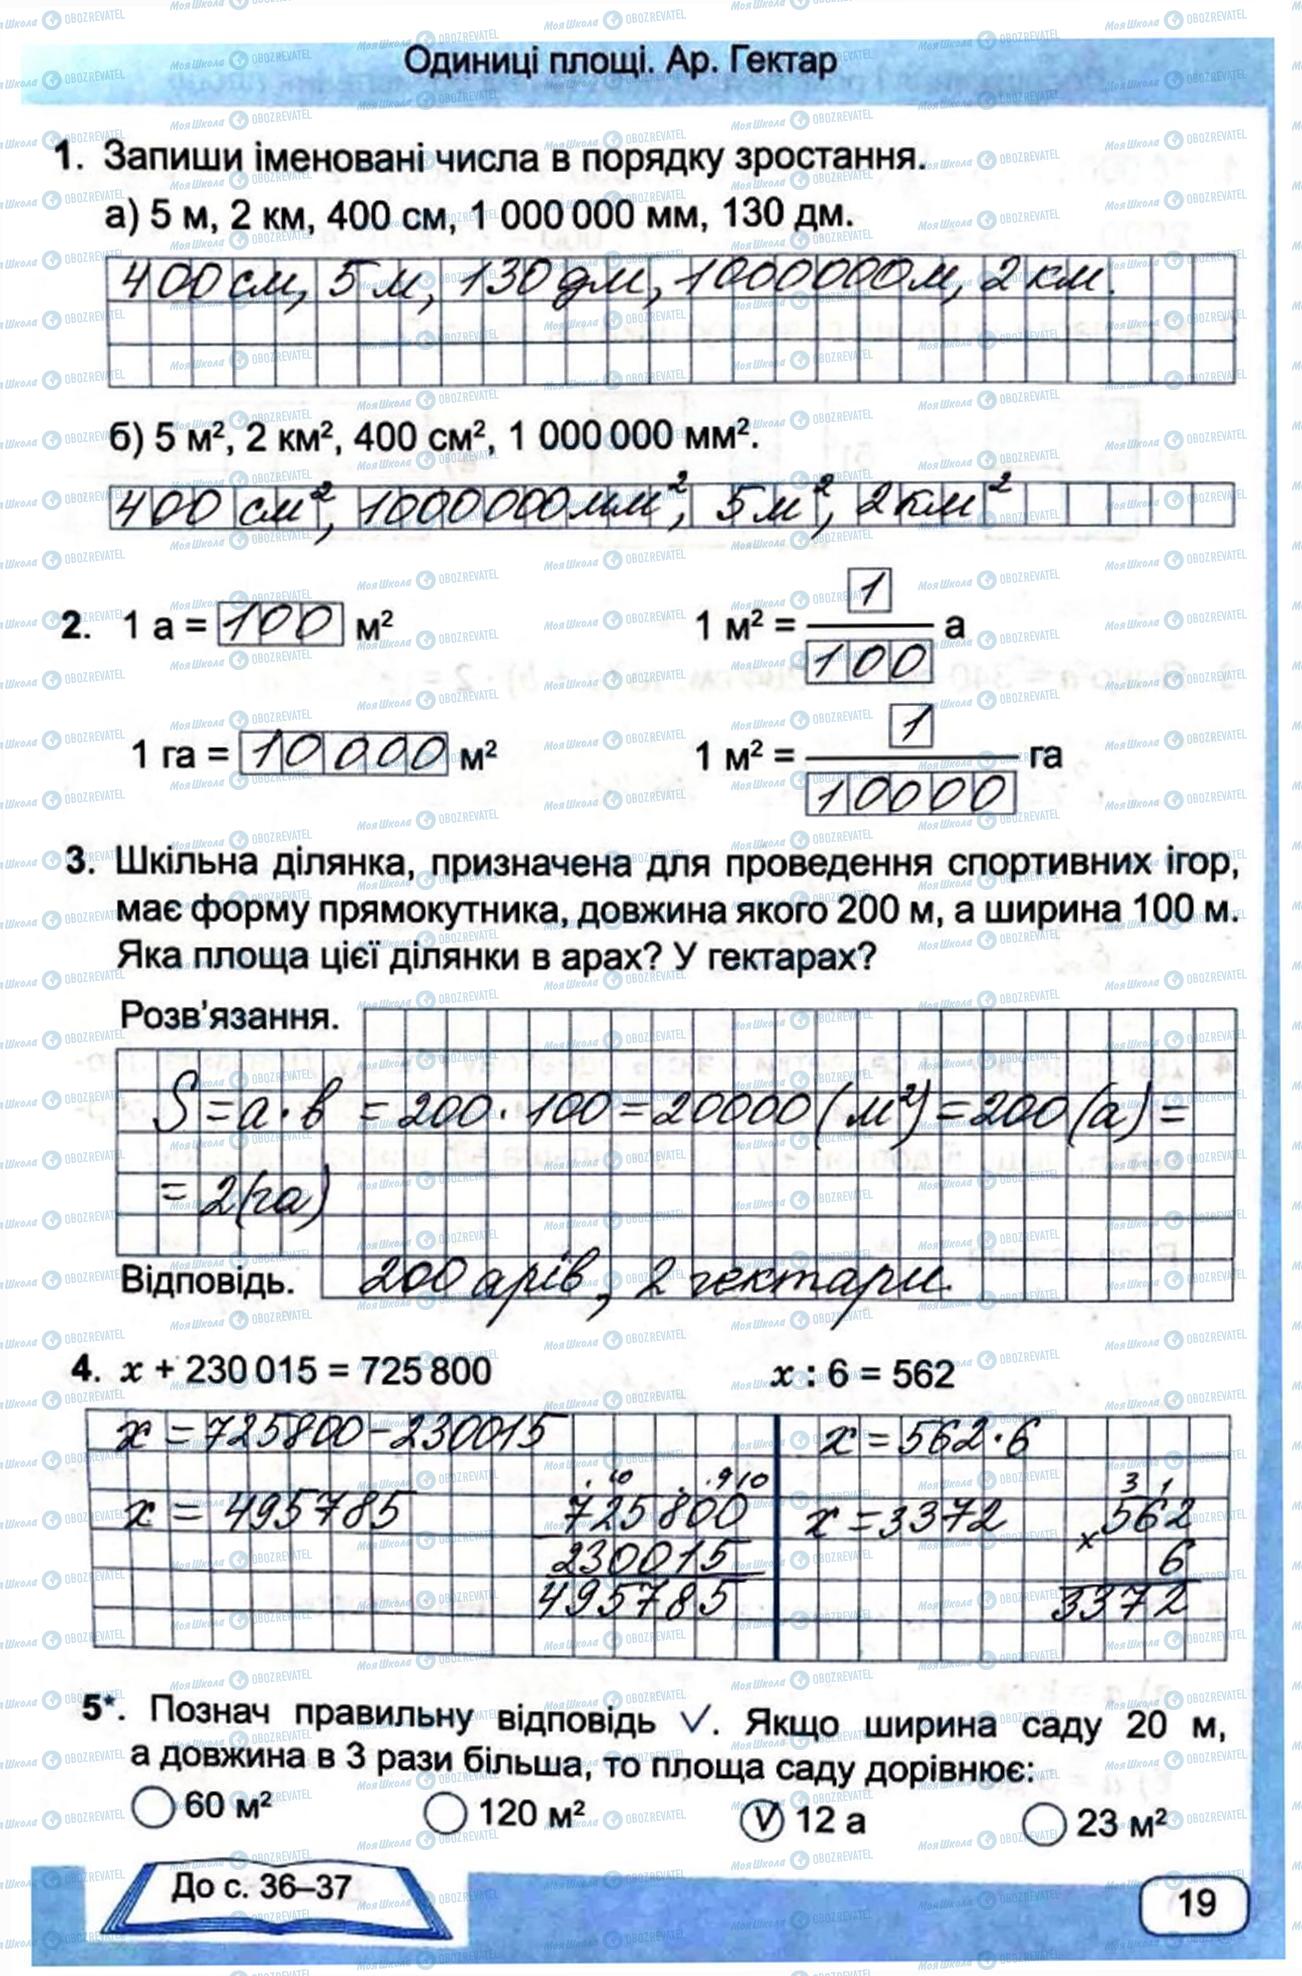 Одиниці площі. Ар. Гектар
1. Запиши іменовані числа в порядку зростання.
а) 5 м, 2 км, 400 см, 1 000 000 мм, 130 дм.
400 см, 5 м, 130 дм, 1000000м, 2 км.
б) 5 м², 2 км², 400 см², 1 000 000 мм².
400 см², 1000000мм², 5 м², 2 км²
2. 1 а = 100 м²
1 м² = 1/100 а
1 га = 10000 м²
1 м² = 1/10000 га
3. Шкільна ділянка, призначена для проведення спортивних ігор,
має форму прямокутника, довжина якого 200 м, а ширина 100 м.
Яка площа цієї ділянки в арах? У гектарах?
Розв'язання.
S = а · в = 200 · 100 = 20000 (м²) = 200 (а) =
= 2 (га)
Відповідь. 200 арів, 2 гектари.
4. x + 230 015 = 725 800
x : 6 = 562
x = 725800 - 230015
x = 495785
. 10 . . 9 10
725800
230015
495785
x = 562 · 6
x = 3372
3 1
562
×
6
3372
5*. Познач правильну відповідь ✓. Якщо ширина саду 20 м,
а довжина в 3 рази більша, то площа саду дорівнює:
60 м² 120 м² V 12 а 23 м²
До с. 36–37
19
МояШкола OBOZREVATEL